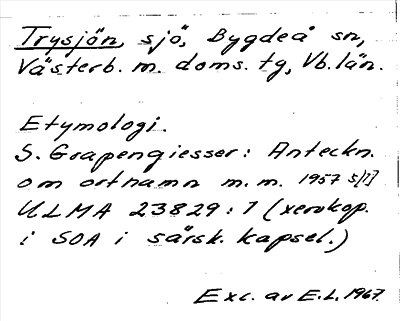 Trysjön, sjö, Bygdeå sn,
Västerb. m. doms. tg, Vb. län.
Etymologi.
S. Grapengiesser: Anteckn.
om ortnamn m. m. 1957 s[1]
ULMA 23829:1 (xerokop.
i SOA i särsk. kapsel.)
Exc. av E.L. 1967.